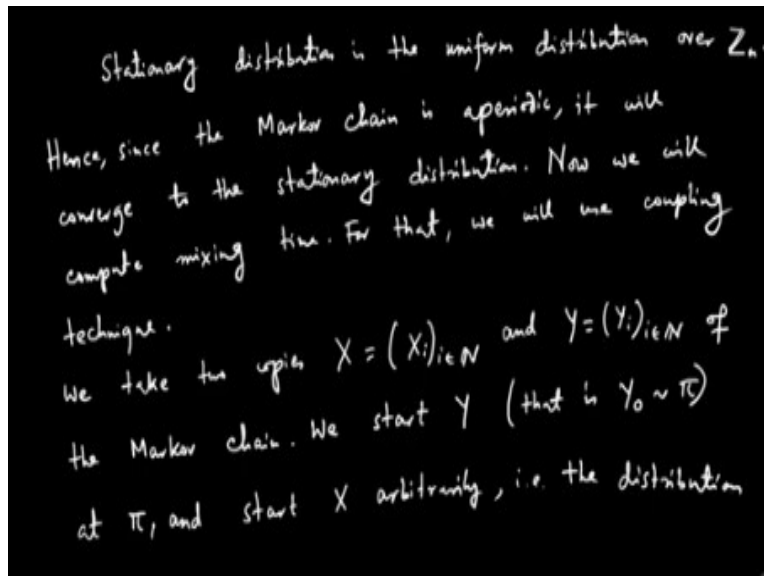 Stationary distribution is the uniform distribution over ℤₙ.
Hence, since the Markov chain is aperiodic, it will
converge to the stationary distribution. Now we will
compute mixing time. For that, we will use coupling
technique.
We take two copies X = (Xᵢ)ᵢ∈ℕ and Y = (Yᵢ)ᵢ∈ℕ of
the Markov chain. We start Y (that is Y₀ ~ π)
at π, and start X arbitrarily, i.e. the distribution